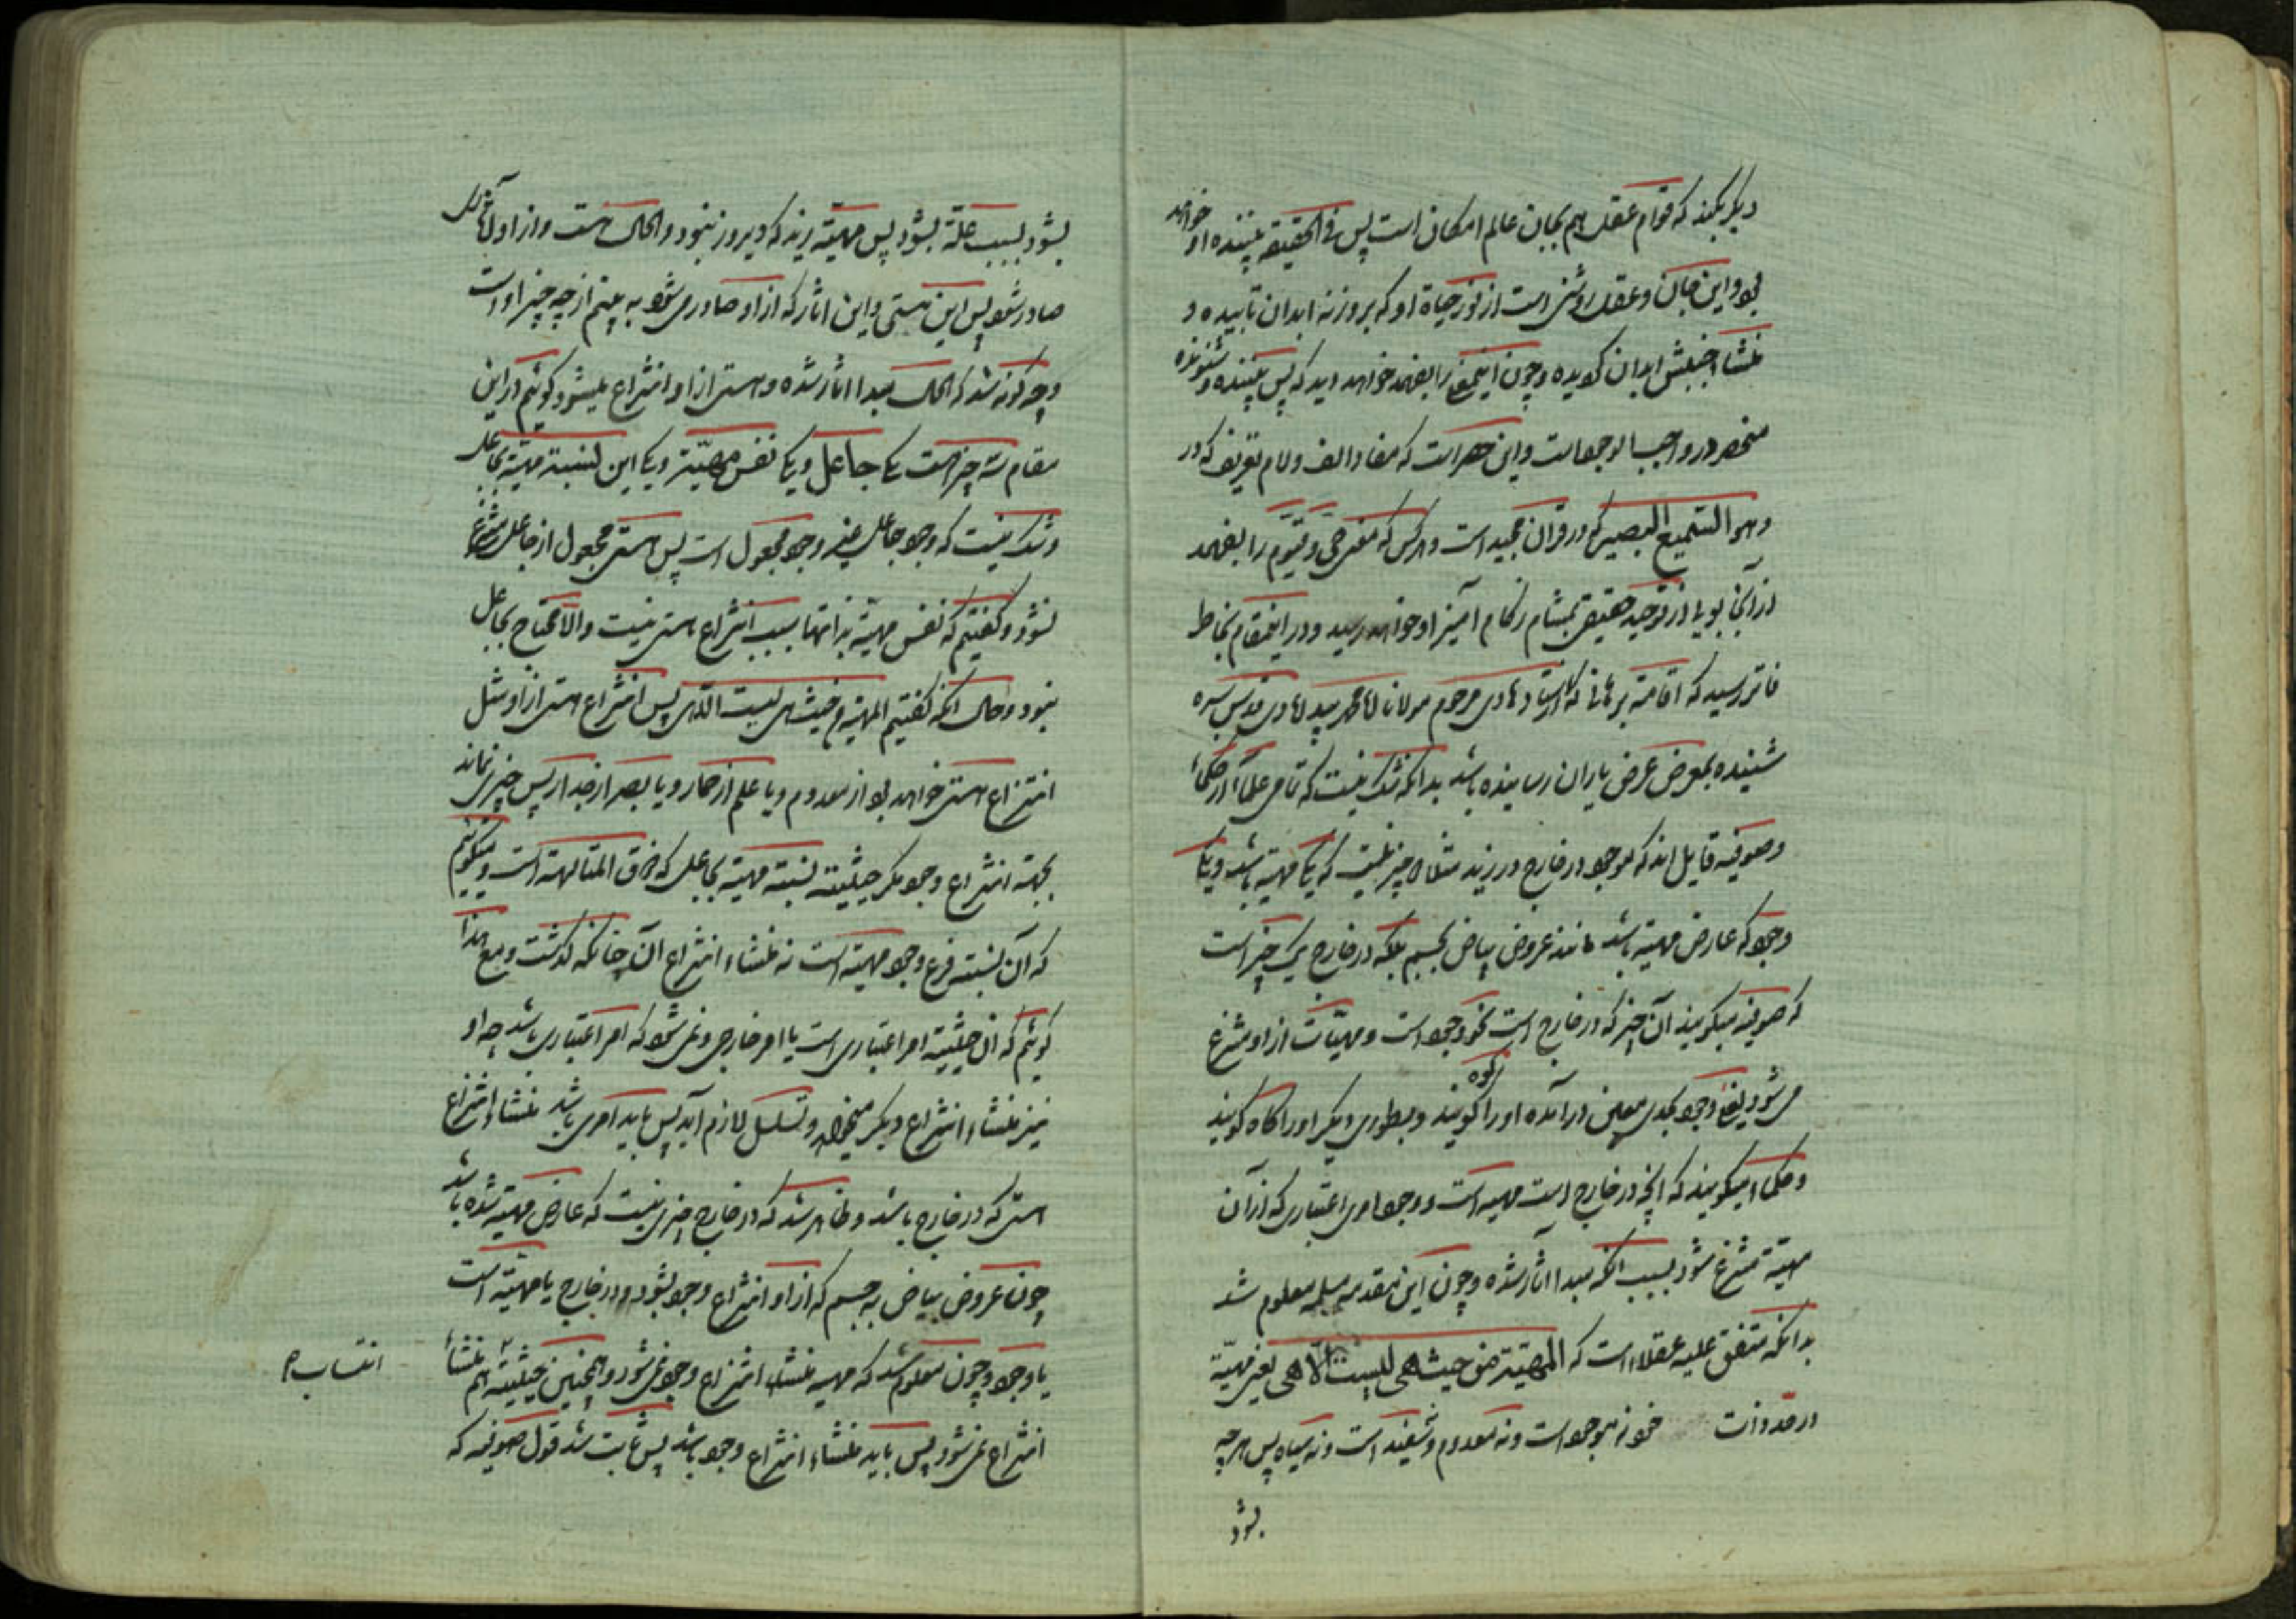 دیگر بکند که قوام عقل هم بجان عالم امکان است پس فی الحقیقه بیننده او خواهد
بود و این جان و عقل روشنی است از نور حیاة او که بروزنه ابدان تابیده و
منشاء جنبش ابدان گردیده و چون اینمعنی را بفهمد خواهد دید که پس بیننده و شنونده
منحصر در واجب الوجود است و این حصر است که مفاد الف و لام تعریف که در
و هو السمیع البصیر که در قران مجید است و هر کس که معنی حی و قیوم را بفهمد
از آنجا بویی از توحید حقیقی بمشام زکام آمیز او خواهد رسید و در اینمقام بخاطر
فاتر رسید که اقامة برهانی که از استاد هادی مرحوم مولانا محمد بیدلادی قدس سره
شنیده بمعرض عرض یاران رسانیده باشد بدانکه شک نیست که تمامی علما از حکما
و صوفیه قایل اند که موجود در خارج در زید مثلا دو چیز نیست که یکی مهیة باشد و یکی
وجود که عارض مهیة باشد مانند عروض بیاض بجسم بلکه در خارج یک چیز است
که صوفیه میگویند آن چیز که در خارج است نحو وجود است و مهیات از او منتزع
می شود یعنی وجود بحدی معین در آمده او را کوه گویند و بطوری دیگر او را کاه گویند
و حکما میگویند که انچه در خارج است مهیه است و وجود امری اعتباری که از آن
مهیة منتزع شود بسبب انکه مبدا آثار شده و چون این مقدمه مسلمه معلوم شد
بدانکه متفق علیه عقلاء است که المهیة من حیث هی لیست الا هی یعنی مهیة
در حد ذات خود نه موجود است و نه معدوم و نه سفید است و نه سیاه پس هرچه
بشود
بشود بسبب علة بشود پس مهیة زید که دیروز نبود و الحال هست و از او آثار
صادر شود پس این هستی و این اثار که از او صادر می شود به بینم از چه چیز او است
و چه گونه شد که الحال مبدا اثار شده و هستی از او انتزاع میشود گوئیم در این
مقام سه چیز است یکی جاعل و یکی نفس مهیة و یکی این نسبة مهیة بجاعل
و شک نیست که وجود جاعل غیر وجود مجعول است پس هستی مجعول از جاعل منتزع
نشود و گفتیم که نفس مهیة بذاتها سبب انتزاع هستی نیست و الا محتاج بجاعل
نبود و حال انکه گفتیم المهیة من حیث هی لیست الا هی پس انتزاع هستی از او مثل
انتزاع هستی خواهد بود از معدوم و یا علم از حمار و یا بصر از جدار پس چیزی نماند
بجهة انتزاع وجود مگر حیثیة نسبة مهیة بجاعل که ذوق المتالهة است و میگوئیم
که آن نسبة فرع وجود مهیة است نه منشاء انتزاع آن چنانکه گذشت و مع هذا
گوئیم که ان حیثیة امر اعتباری است یا امر خارجی و نمی شود که امر اعتباری باشد چه او
نیز منشاء انتزاع دیگر میخواهد و تسلسل لازم آید پس باید امری باشد منشاء انتزاع
هستی که در خارج باشد و ظاهر شد که در خارج چیزی نیست که عارض مهیة شده باشد
چون عروض بیاض به جسم که از او انتزاع وجود بشود و در خارج یا مهیة است
یا وجود و چون معلوم شد که مهیه منشاء انتزاع وجود نمی شود و همچنین حیثیة هم منشاء
انتساب
انتزاع نمی شود پس باید منشاء انتزاع وجود باشد پس ثابت شد قول صوفیه که